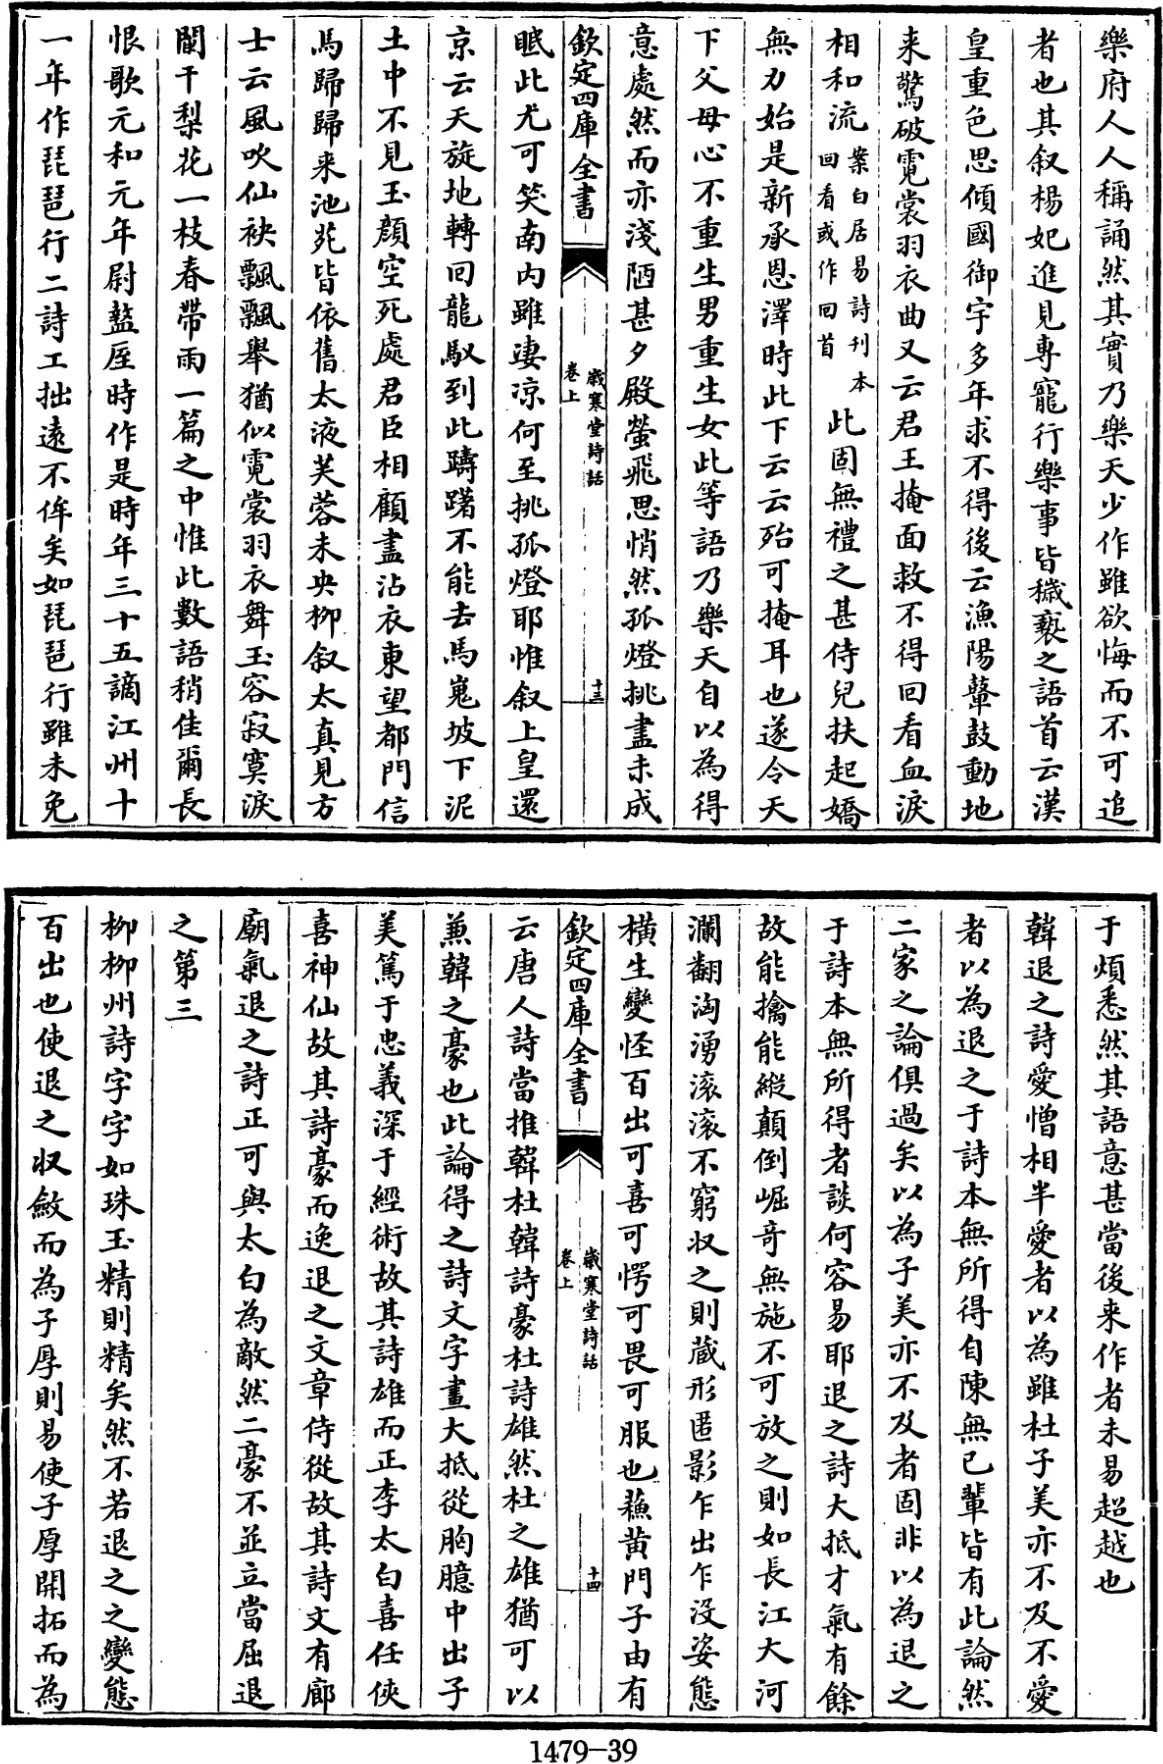 樂府人人稱誦然其實乃樂天少作雖欲悔而不可追
者也其叙楊妃進見專寵行樂事皆穢䙝之語首云漢
皇重色思傾國御宇多年求不得後云漁陽鼙鼓動地
来驚破霓裳羽衣曲又云君王掩面救不得回看血淚
相和流案白居易詩刋本回看或作回首此固無禮之甚侍兒扶起嬌
無力始是新承恩澤時此下云云殆可掩耳也遂令天
下父母心不重生男重生女此等語乃樂天自以為得
意處然而亦淺陋甚夕殿螢飛思悄然孤燈挑盡未成
欽定四庫全書
歲寒堂詩話
卷上
十三
眠此尤可笑南内雖凄凉何至挑孤燈耶惟叙上皇還
京云天旋地轉回龍馭到此躊躇不能去馬嵬坡下泥
土中不見玉顔空死處君臣相顧盡沾衣東望都門信
馬歸歸来池苑皆依舊太液芙蓉未央柳叙太真見方
士云風吹仙袂飄飄舉猶似霓裳羽衣舞玉容寂寞淚
闌干梨花一枝春帶雨一篇之中惟此數語稍佳爾長
恨歌元和元年尉盩厔時作是時年三十五謫江州十
一年作琵琶行二詩工拙遠不侔矣如琵琶行雖未免
于煩悉然其語意甚當後来作者未易超越也
韓退之詩愛憎相半愛者以為雖杜子美亦不及不愛
者以為退之于詩本無所得自陳無已輩皆有此論然
二家之論俱過矣以為子美亦不及者固非以為退之
于詩本無所得者談何容易耶退之詩大抵才氣有餘
故能擒能縱顛倒崛奇無施不可放之則如長江大河
瀾翻洶湧滚滚不窮收之則藏形匿影乍出乍没姿態
横生變怪百出可喜可愕可畏可服也蘓黄門子由有
欽定四庫全書
歲寒堂詩話
卷上
十四
云唐人詩當推韓杜韓詩豪杜詩雄然杜之雄猶可以
兼韓之豪也此論得之詩文字畫大抵從胸臆中出子
美篤于忠義深于經術故其詩雄而正李太白喜任俠
喜神仙故其詩豪而逸退之文章侍從故其詩文有廊
廟氣退之詩正可與太白為敵然二豪不並立當屈退
之第三
柳柳州詩字字如珠玉精則精矣然不若退之之變態
百出也使退之收斂而為子厚則易使子厚開拓而為
1479-39